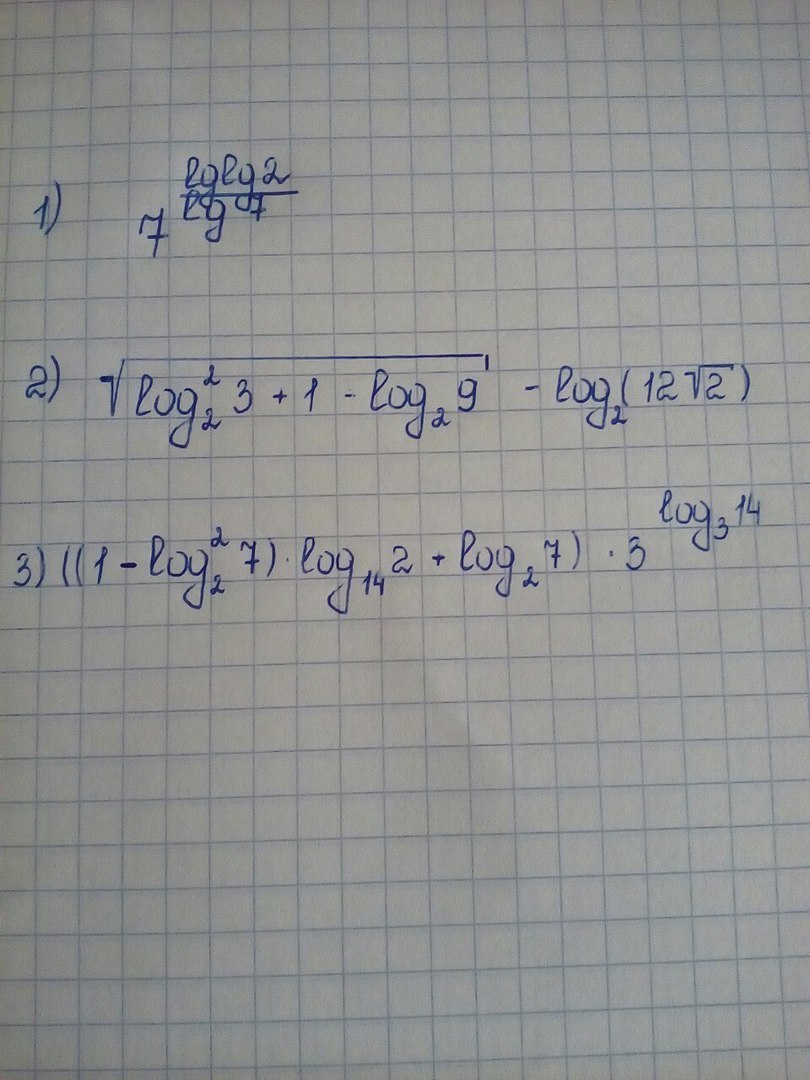 1) 7^{\frac{lg lg 2}{lg 7}}
2) \sqrt{log_2^2 3 + 1 - log_2 9} - log_2(12\sqrt{2})
3) ((1 - log_2^2 7) \cdot log_{14} 2 + log_2 7) \cdot 3^{log_3 14}